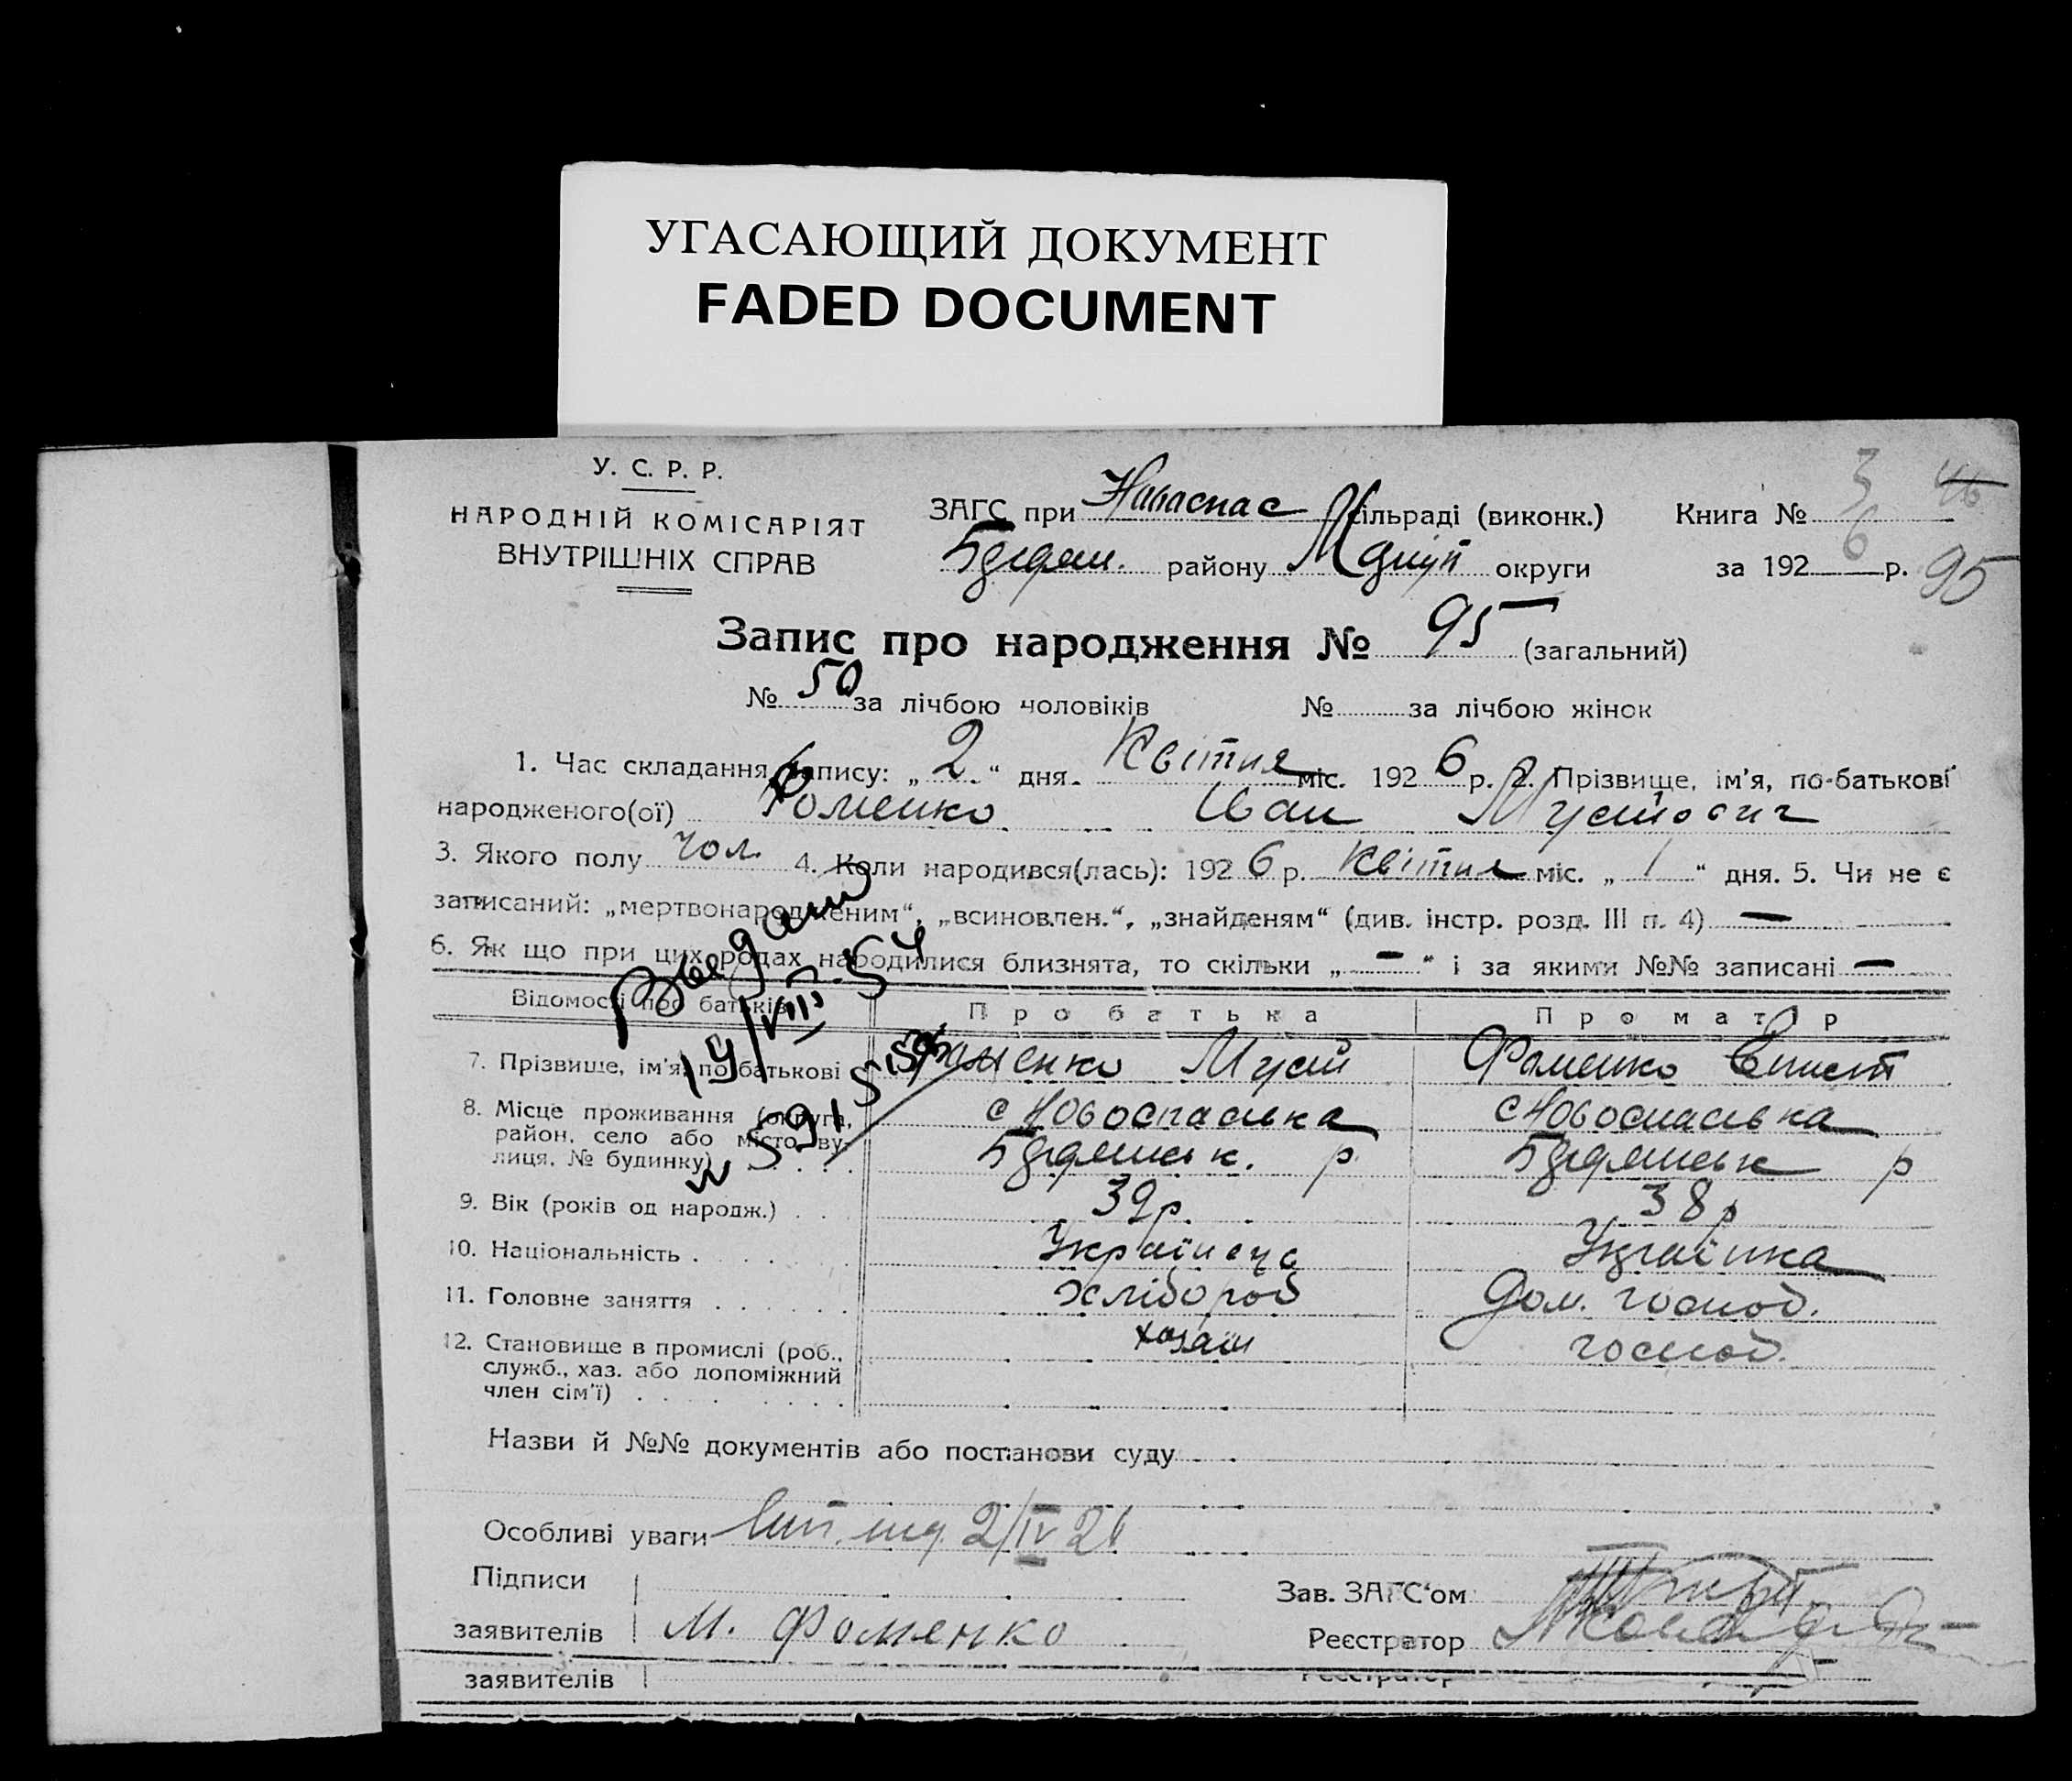 УГАСАЮЩИЙ ДОКУМЕНТ
FADED DOCUMENT
У. С. Р. Р.
НАРОДНІЙ КОМІСАРІЯТ
ВНУТРІШНІХ СПРАВ
ЗАГС при Новоспас сільраді (виконк.)
району округи
Книга № 3
за 1926 р.
46
95
Запис про народження № 95 (загальний)
№ 50 за лічбою чоловіків № за лічбою жінок
1. Час складання запису: „ 2 “ дня Квітня міс. 1926 р. 2. Прізвище, ім’я, по-батькові
народженого(ої) Фоменко Іван Мусійович
3. Якого полу чол. 4. Коли народився(лась): 1926 р. Квітня міс. „ 1 “ дня. 5. Чи не є
записаний: „мертвонародженим“, „всиновлен.“, „знайденям“ (див. інстр. розд. III п. 4) —
6. Як що при цих родах народилися близнята, то скільки „ — “ і за якими №№ записані —
Відомості про батьків Про батька Про матір
7. Прізвище, ім’я, по-батькові Фоменко Мусій Фоменко
8. Місце проживання (округа, с Новоспасівка с Новоспасівка
район, село або місто, ву-
лиця, № будинку) р р
9. Вік (років од народж.) 39 р. 38 р
10. Національність Українець Українка
11. Головне заняття хлібороб Дом. господ.
12. Становище в промислі (роб., хазяїн господ.
служб., хаз. або допоміжний
член сім’ї)
Выдан
14/VIII-54
Назви й №№ документів або постанови суду
Особливі уваги 2/IV 26
Підписи
заявителів М. Фоменко
Зав. ЗАГС‘ом
Реєстратор
заявителів Реєстратор